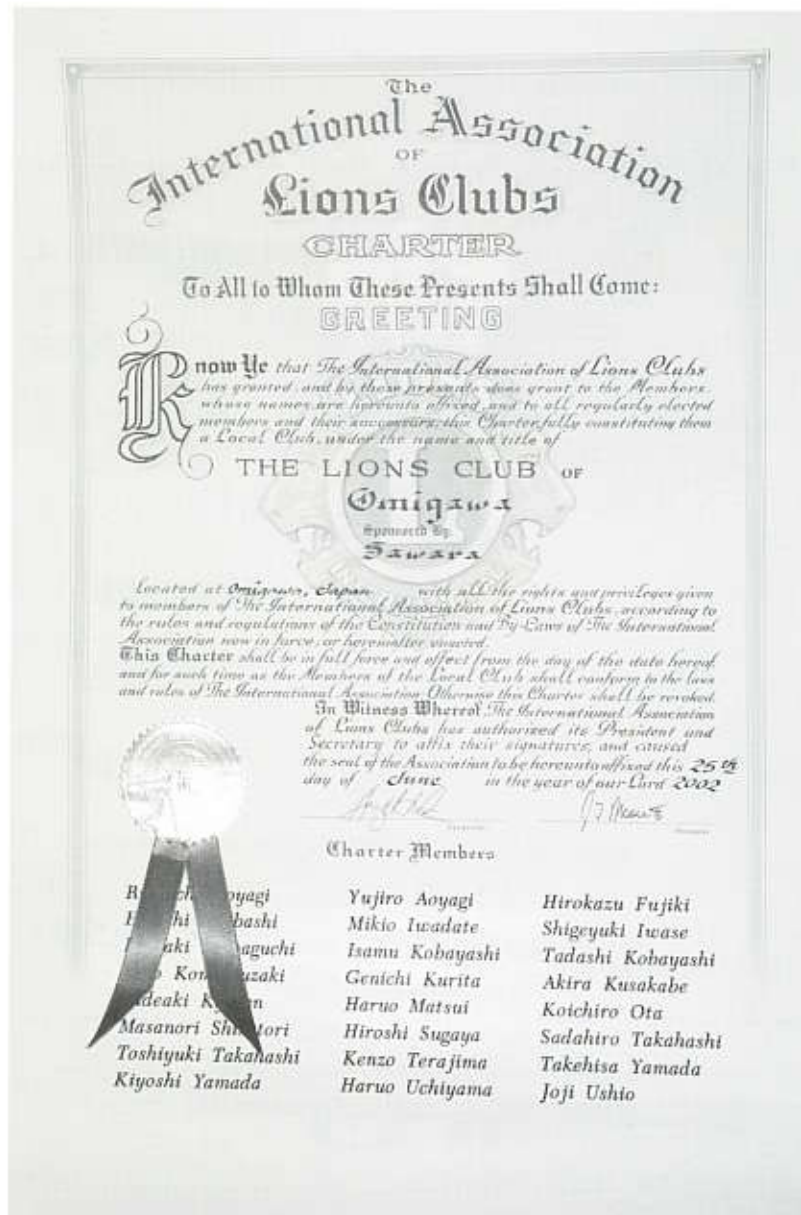 The
International Association
OF
Lions Clubs
CHARTER
To All to Whom These Presents Shall Come:
GREETING
Know Ye that The International Association of Lions Clubs
has granted, and by these presents does grant to the Members,
whose names are hereunto affixed, and to all regularly elected
members and their successors, this Charter, fully constituting them
a Local Club, under the name and title of
THE LIONS CLUB OF
Omigawa
Sponsored By:
Sawara
Located at Omigawa, Japan with all the rights and privileges given
to members of The International Association of Lions Clubs, according to
the rules and regulations of the Constitution and By-Laws of The International
Association now in force, or hereinafter enacted.
This Charter shall be in full force and effect from the day of the date hereof,
and for such time as the Members of the Local Club shall conform to the laws
and rules of The International Association. Otherwise this Charter shall be revoked.
In Witness Whereof, The International Association
of Lions Clubs has authorized its President and
Secretary to affix their signatures, and caused
the seal of the Association to be hereunto affixed this 25th
day of June in the year of our Lord 2002
Charter Members
Yujiro Aoyagi Hirokazu Fujiki
Mikio Iwadate Shigeyuki Iwase
Isamu Kobayashi Tadashi Kobayashi
Genichi Kurita Akira Kusakabe
Haruo Matsui Koichiro Ota
Masanori Hiroshi Sugaya Sadahiro Takahashi
Toshiyuki Takahashi Kenzo Terajima Takehisa Yamada
Kiyoshi Yamada Haruo Uchiyama Joji Ushio